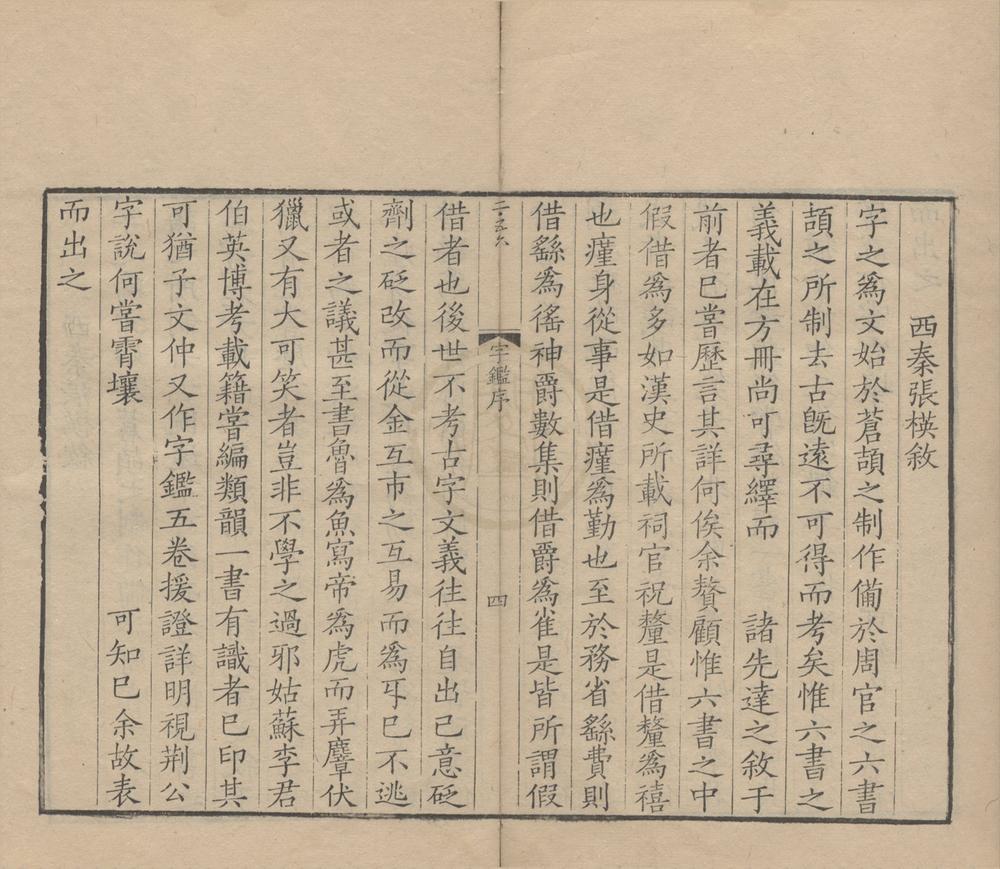 西秦張楧敘
字之爲文始於蒼頡之制作備於周官之六書
頡之所制去古旣遠不可得而考矣惟六書之
義載在方冊尚可尋繹而　諸先達之敘于
前者已嘗歷言其詳何俟余贅顧惟六書之中
假借爲多如漢史所載祠官祝釐是借釐爲禧
也廑身從事是借廑爲勤也至於務省繇費則
借繇爲徭神爵數集則借爵爲雀是皆所謂假
字鑑序
四
借者也後世不考古字文義往往自出己意砭
劑之砭改而從金互市之互易而爲㸦已不逃
或者之議甚至書魯爲魚寫帝爲虎而弄麞伏
獵又有大可笑者豈非不學之過邪姑蘇李君
伯英博考載籍嘗編類韻一書有識者已印其
可猶子文仲又作字鑑五卷援證詳明視荆公
字說何啻霄壤　可知已余故表
而出之